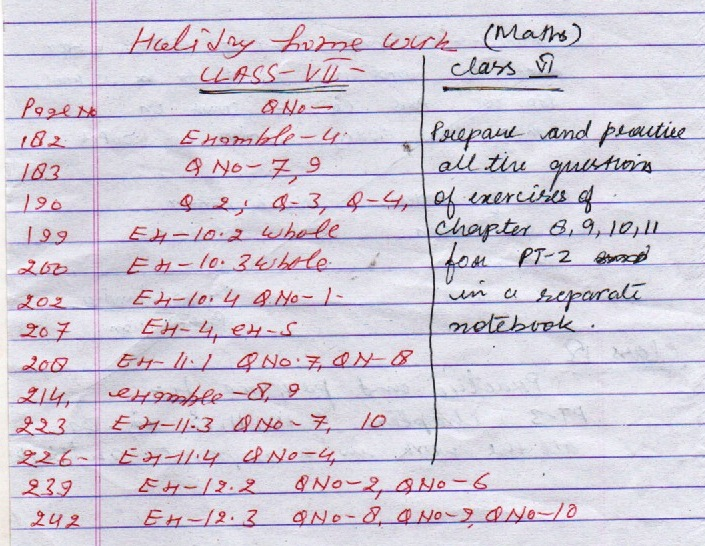 Holiday home work (Maths)
CLASS-VII-
Page No QNo-
182 Example-4.
183 Q No-7, 9
190 Q 2, Q-3, Q-4,
199 EX-10.2 whole
200 EX-10.3 whole
202 EX-10.4 QNo-1-
207 EX-4, ex-5
208 EX-11.1 QNo.7, QN-8
214, example-8, 9
223 EX-11.3 QNo-7, 10
226- EX-11.4 QNo-4,
239 EX-12.2 QNo-2, QNo-6
242 EX-12.3 QNo-8, QNo-9, QNo-10
class VI
Prepare and practice
all the question
of exercises of
Chapter 8, 9, 10, 11
for PT-2
in a separate
notebook.